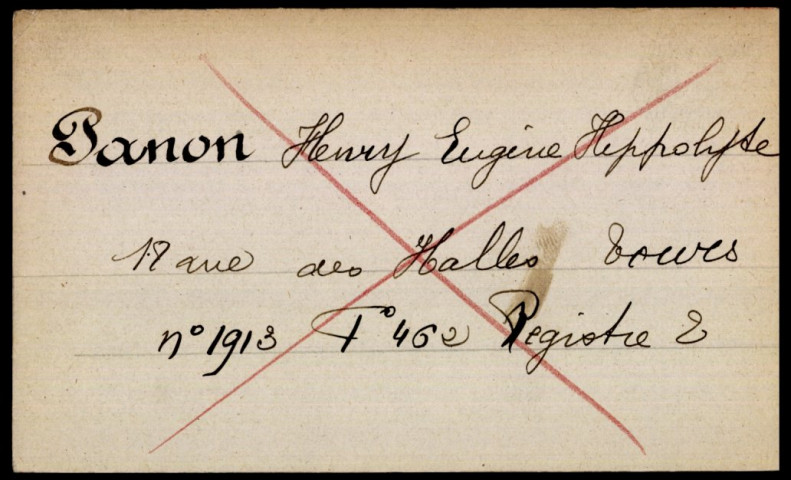 Panon Henry Eugène Hippolyte
17 rue des Halles Tours
n° 1913 F° 462 Registre 2